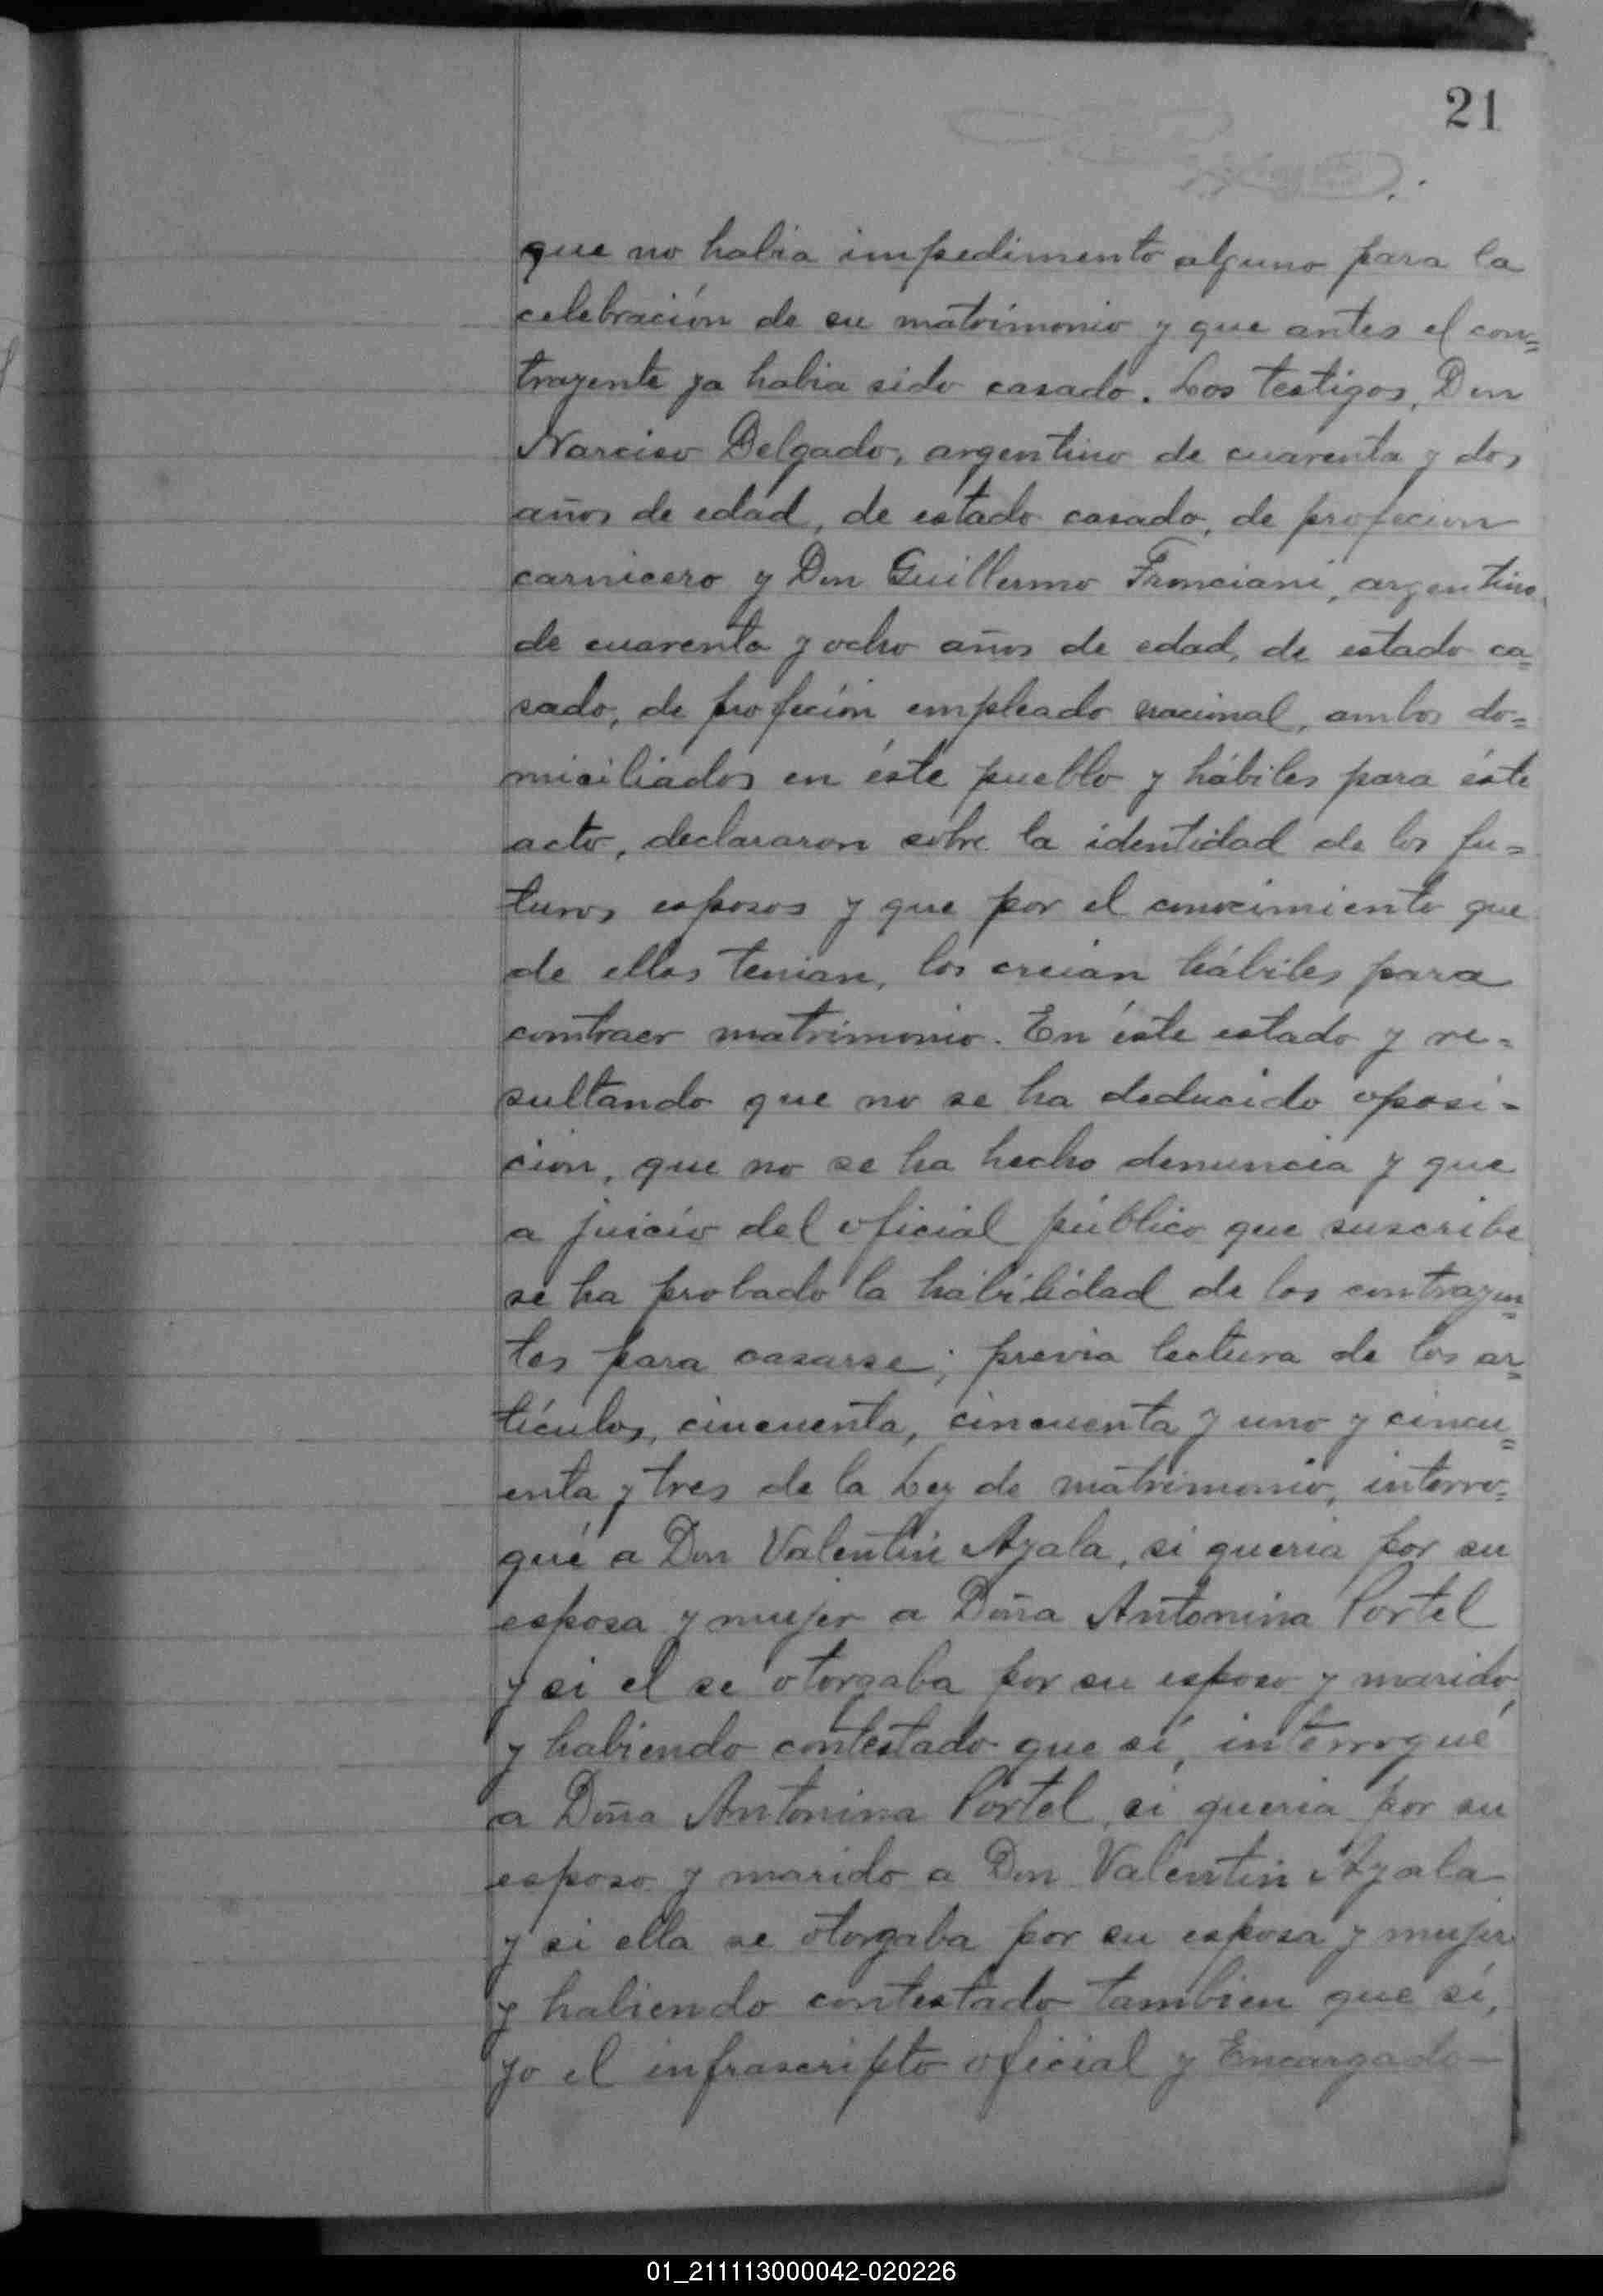 21
que no habia impedimento alguno para la
celebración de su matrimonio y que antes el con=
trayente ya habia sido casado. Los testigos, Don
Narciso Delgado, argentino de cuarenta y dos
años de edad, de estado casado, de profecion
carnicero y Don Guillermo Franciani, argentino
de cuarenta y ocho años de edad, de estado ca=
sado, de profeción empleado nacional, ambos do=
miciliados en éste pueblo y hábiles para éste
acto, declararon sobre la identidad de los fu=
turos esposos y que por el conocimiento que
de ellos tenian, los creian hábiles para
contraer matrimonio. En éste estado y re=
sultando que no se ha deducido oposi-
cion, que no se ha hecho denuncia y que
a juicio del oficial público que suscribe
se ha probado la habilidad de los contrayen=
tes para casarse; previa lectura de los ar=
tículos, cincuenta, cincuenta y uno y cincu=
enta y tres de la Ley de matrimonio, interro=
gué a Don Valentin Ayala, si queria por su
esposa y mujer a Doña Antonina Portel
y si el se otorgaba por su esposo y marido
y habiendo contestado que sí, interrogué
a Doña Antonina Portel, si queria por su
esposo y marido a Don Valentin Ayala
y si ella se otorgaba por su esposa y mujer
y habiendo contestado tambien que sí,
yo el infrascripto oficial y Encargado-
01_211113000042-020226